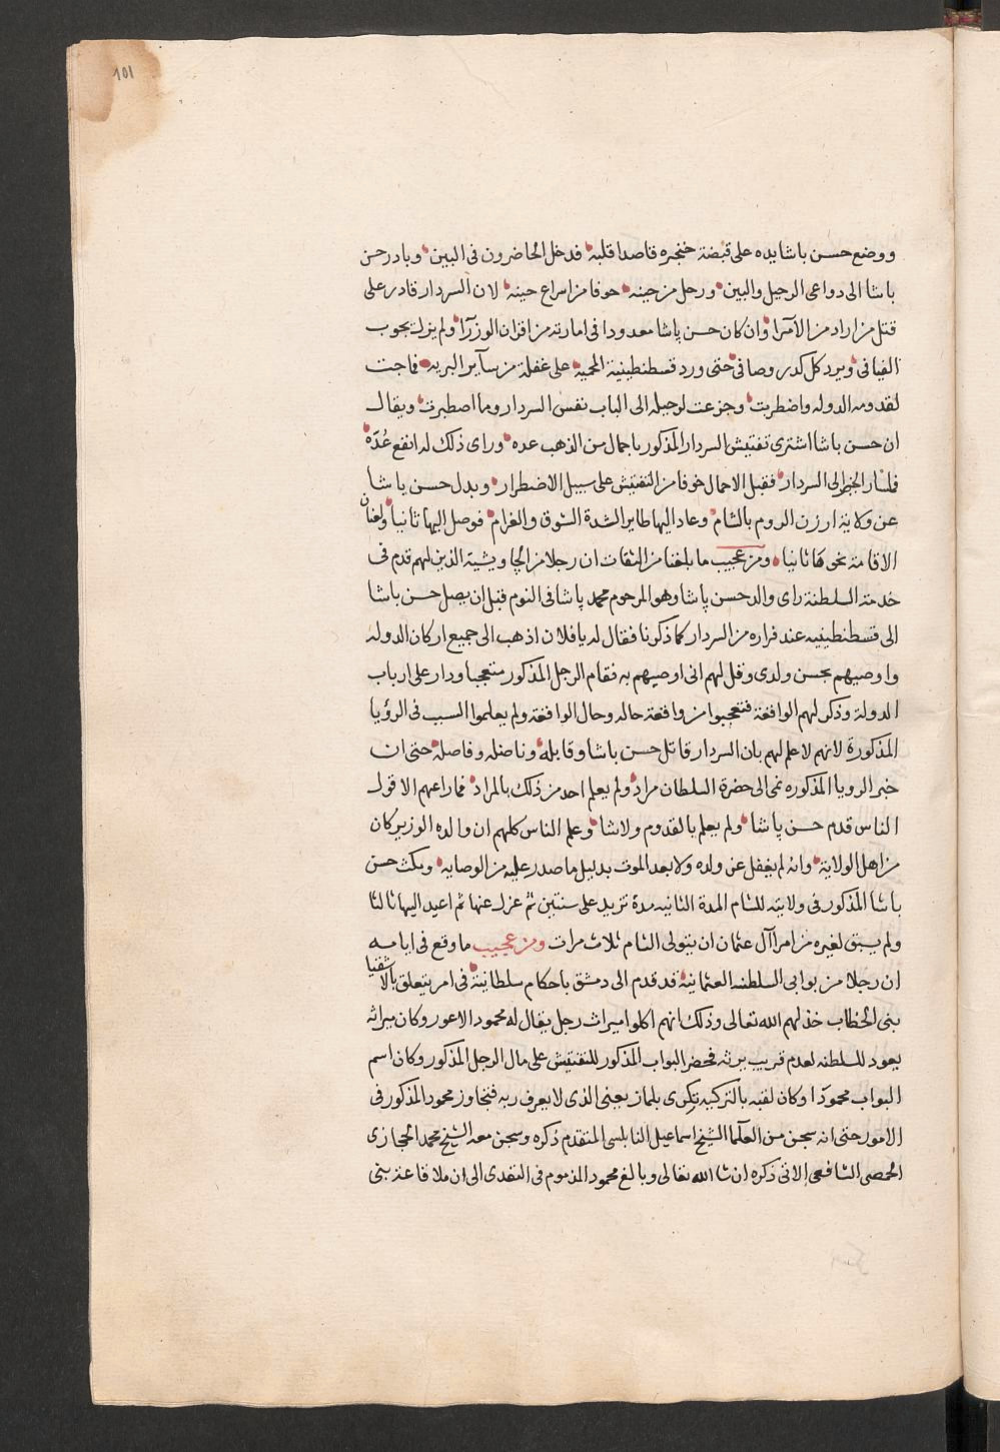 101
ووضع حسن باشا يده على قبضة خنجره قاصدا قلبه فدخل الحاضرون فى البين وبادر حسن
باشا الى دواعى الرحيل والبين ورحل من حينه خوفا من اسراع حينه لان السردار قادر على
قتل من اراد من الامرا وان كان حسن پاشا معدودا فى امارته من اقران الوزرآ ولم يزل يجوب
الفيافى ويرد كل كدر وصافى حتى ورد قسطنطينية المحمية على غفلة من سآير البريه فاجت
لقدومه الدوله واضطربت وجزعت لرحيله الى الباب نفس السردار وما اصطبرت ويقال
ان حسن باشا اشترى تفتيش السردار المذكور باجمال من الذهب عده وراى ذلك له انفع عُدّه
فلسار الخبر الى السردار فقبل الاحمال خوفا من التفتيش على سبيل الاضطرار وبدل حسن پاشا
عن ولاية ارزن الروم بالشام وعاد اليها طاير الشدة الشوق والغرام فوصل اليها ثانيا ولعنان
الاقامة نحوها ثانيا ومن عجيب ما بلغنا من الثقات ان رجلا من الچاويشية الذين لهم قدم فى
خدمة السلطنة راى والد حسن پاشا وهو المرحوم محمد پاشا فى النوم قبل ان يصل حسن باشا
الى قسطنطينيه عند فراره من السردار كما ذكرنا فقال له يا فلان اذهب الى جميع اركان الدوله
واوصيهم بحسن ولدى وقل لهم انى اوصيهم به فقام الرجل المذكور متعجبا ودار على ارباب
الدولة وذكر لهم الواقعة فتعجبوا من واقعة حاله وحال الواقعة ولم يعلموا السبب فى الرؤيا
المذكورة لانهم لا علم لهم بان السردار قاتل حسن باشا وقابله وناضله وفاصله حتى ان
خبر الرويا المذكوره نمى الى حضرة السلطان مراد ولم يعلم احد من ذلك بالمراد فما راعهم الا قول
الناس قدم حسن پاشا ولم يعلم بالقدوم ولاشا وعلم الناس كلهم ان والده الوزير كان
من اهل الولاية وانه لم يغفل عن ولده ولا بعد الموت بدليل ما صدر عليه من الوصايه ومكث حسن
باشا المذكور فى ولايته للشام المدة الثانيه مدة تزيد على سنتين ثم عزل عنها ثم اعيد اليها ثالثا
ولم يسبق لغيره من امرا آل عثمان ان يتولى الشام ثلاث مرات ومن عجيب ما وقع فى ايامه
ان رجلا من بوابى السلطنه العثمانية قد قدم الى دمشق باحكام سلطانية فى امر يتعلق بالاشقيا
بنى الخطاب خذلهم الله تعالى وذلك انهم اكلوا ميراث رجل يقال له محمود الاعور وكان ميراثه
يعود للسلطنه لعدم قريب يرثه فحضر البواب المذكور للتفتيش على مال الرجل المذكور وكان اسم
البواب محمودا وكان لقبه بالتركيه تكرى بلماز يعنى الذى لا يعرف ربه فتجاوز محمود المذكور فى
الامور حتى انه سجن من العلما الشيخ اسماعيل النابلسى المتقدم ذكره وسجن معه الشيخ محمد الحجازى
الحمصى الشافعى الاتى ذكره ان شا الله تعالى وبالغ محمود المذموم فى التعدى الى ان ملا قاعة بنى